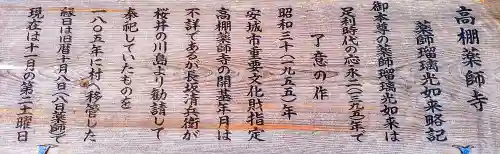 高棚薬師寺
薬師瑠璃光如来略記
御本尊の薬師瑠璃光如来は
足利時代の応永二(一三九五)年で
了意の作
昭和三十(一九五五)年
安城市重要文化財指定
高棚薬師寺の開基年月は
不詳であるが長坂清兵衛が
桜井の川島より勧請して
奉祀していたものを
一八八五年に村へ移管した
縁日は旧暦十月八日(八月薬師)で
現在は十一月の第二土曜日